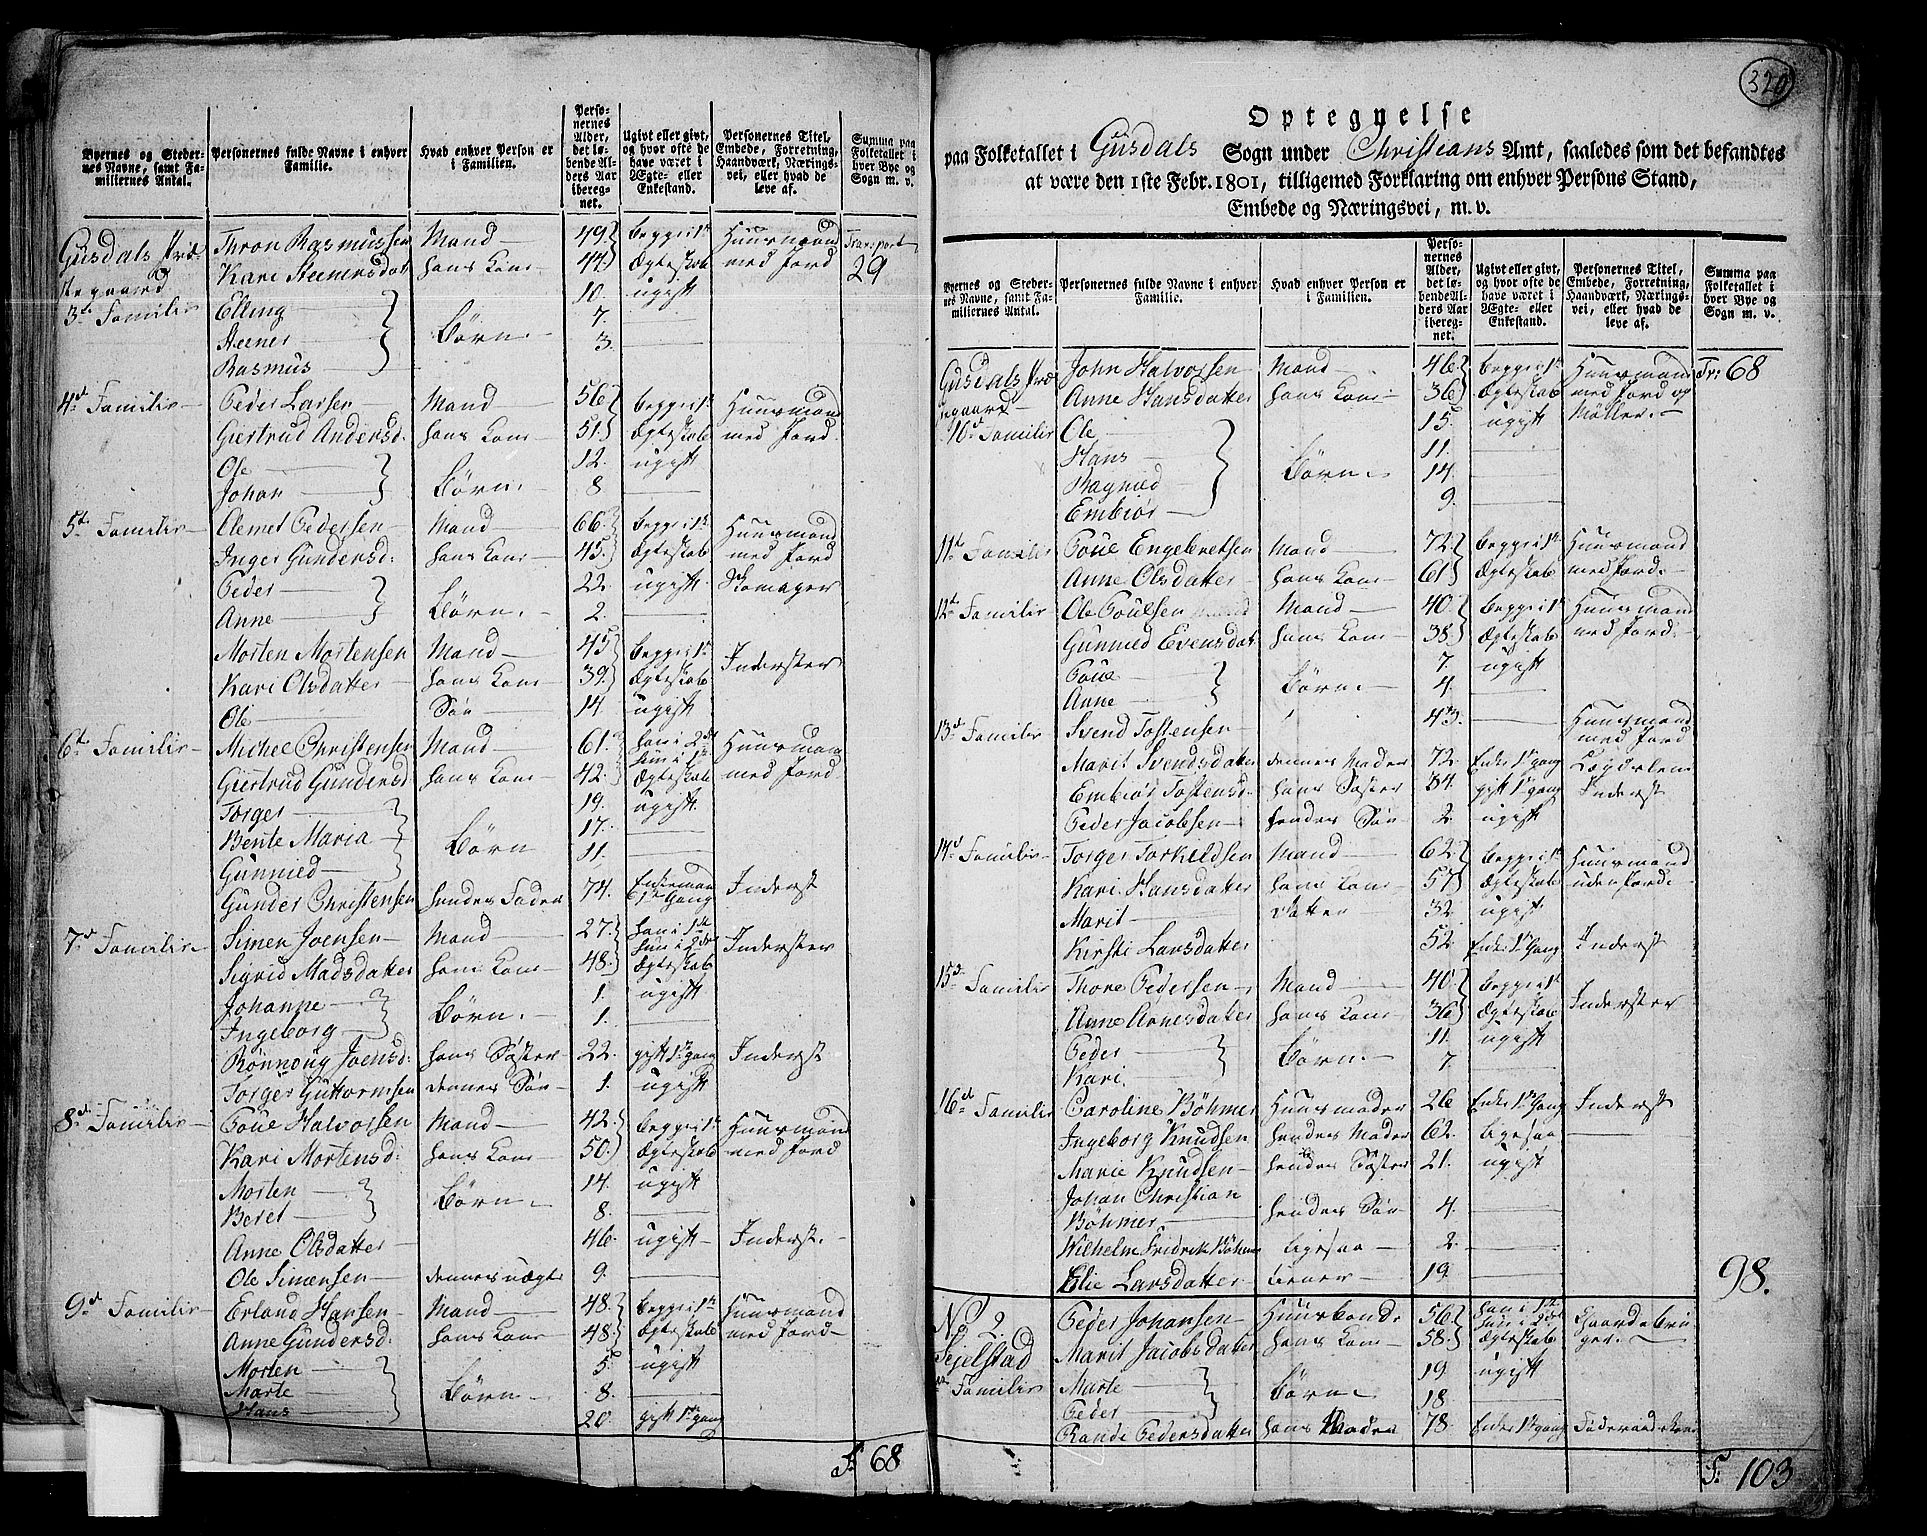 Byernes og Steder-
nes Navne, samt Fa-
miliernes Antal.
Personernes fulde Navne i enhver
Familie.
Hvad enhver Person er
i Familien.
Perso-
nernes
Alder,
det lø-
bende Al-
ders Aar
ibereg-
net.
Ugivt eller givt,
og hvor ofte de
have været i
Ægte- eller
Enkestand.
Personernes Titel,
Embede, Forretning,
Haandværk, Nærings-
vei, eller hvad de
leve af.
Summa paa
Folketallet i
hver Bye og
Sogn m. v.
Gusdals Præ- Thron Rasmussen Mand 49. begge i 1ste Huusmand Transport
stegaard Kari Steenersdat hans Kone 44. Ægteskab med Jord 29
3die Familie Elling 10. ugift
Steener Børn 7.
Rasmus 3.
4de Familie Peder Larsen Mand 56. begge i 1ste Huusmand
Giertrud Andersd. hans Kone 51. Ægteskab med Jord
Ole 12. ugift
Johan Børn 8.
5te Familie Clemet Pedersen Mand 66. begge i 1ste Huusmand
Inger Gundersd: hans Kone 45. Ægteskab med Jord
Peder 22. ugift Skomager
Anne Børn 2.
Morten Mortensen Mand 45 begge i 1ste Inderster
Kari Olsdatter hans Kone 39. Ægteskab
Ole Søn 14 ugift
6te Familie Michel Christensen Mand 61. han i 2det hun i 1ste Huusmand
Giertrud Gundersd hans Kone 42. Ægteskab med Jord
Torger 19. ugift
Bente Maria Børn 17.
Gunnild 11.
Gunder Christensen hendes Fader 74. Enkemand 1ste Gang Inderst
7de Familie Simen Joensen Mand 27. han i 1ste hun i 2det Inderster
Sigrid Madsdatter hans Kone 48. Ægteskab
Johanne Børn 1. ugift
Ingeborg 1.
Rønnoug Joensd: hans Søster 22. gift 1ste gang Inderst
Torger Guttormsen dennes Søn 1. ugift
8de Familie Poue Halvorsen Mand 42. begge i 1ste Huusmand
Kari Mortensd: hans Kone 50. Ægteskab med Jord
Morten Børn 14. ugift
Beret 8.
Anne Olsdatter 46. ugift Inderst
Ole Simensen dennes uægte 9.
9de Familie Erland Hansen Mand 48. begge i 1ste Huusmand
Anne Gundersd. hans Kone 48. Ægteskab med Jord
Morten 5 ugift
Marte Børn 8.
Hans 20. gift 1ste gang
S. 68
320
Optegnelse
paa Folketallet i Gusdals Sogn under Christians Amt, saaledes som det befandtes
at være den 1ste Febr. 1801, tilligemed Forklaring om enhver Persons Stand,
Embede og Næringsvei, m. v.
Byernes og Steder-
nes Navne, samt Fa-
miliernes Antal.
Personernes fulde Navne i enhver
Familie.
Hvad enhver Person er
i Familien.
Perso-
nernes
Alder,
det lø-
bende Al-
ders Aar
ibereg-
net.
Ugivt eller givt,
og hvor ofte de
have været i
Ægte- eller
Enkestand.
Personernes Titel,
Embede, Forretning,
Haandværk, Nærings-
vei, eller hvad de
leve af.
Summa paa
Folketallet i
hver Bye og
Sogn m. v.
Gusdals Præ- John Halvorsen Mand 46. begge i 1ste Huusmand Tr: 68
stegaard Anne Hansdatter hans Kone 36 Ægteskab med Jord og
10de Familie Ole 15. ugift Møller.
Hans 11.
Ragnild Børn 14.
Embiør 9.
11te Familie Poue Engebretsen Mand 72. begge i 1ste Huusmand
Anne Olsdatter hans Kone 61 Ægteskab med Jord.
12te Familie Ole Poulsen Mand 40. begge i 1ste Huusmand
Gunnild Evensdat hans Kone 38 Ægteskab med Jord.
Poue Børn 7. ugift
Anne 4.
13de Familie Svend Tostensen 43. Huusmand med Jord
Marit Svendsdatter dennes Moder 72. Enke 1ste gang Lægdslem
Embiør Tostensd. hans Søster 34. gift 1ste gang Inderst
Peder Jacobsen hendes Søn 2. ugift
14de Familie Torger Torkildsen Mand 62. begge i 1ste Huusmand
Kari Hansdatter hans Kone 57 Ægteskab uden Jord.
Marit Datter 32 ugift
Kirsti Larsdatter 52 Enke 1ste Gang Inderst
15de Familie Thore Pedersen Mand 40 begge i 1ste Inderster
Anne Arnesdatter hans Kone 36 Ægteskab
Peder Børn 11. ugift
Kari 7.
16de Familie Caroline Bøhmer Huusmoder 26 Enke 1ste Gang Inderst
Ingeborg Knudsen hendes Moder 62. ligesaa
Marie Knudsen hendes Søster 21. ugift
Johan Christian
Bøhmer hendes Søn 4.
Wilhelm Fridrik Bøhmer ligesaa 2.
Elie Larsdatter tiener 19. 98.
No 2. Peder Johansen Huusbonde 56 han i 1ste hun i 2det Gaardebru-
Sejelstad Marit Jacobsdatter hans Kone 58. Ægteskab ger.
Familie Marte Børn 19 ugift
Peder 18
Rande Pedersdatter hans Moder 78. Enke 1ste gang
S. 103